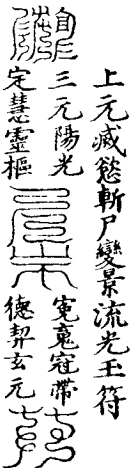 上元滅慾斬尸變景流光玉符
三元陽光
定慧靈樞
寃䰟冦帶
德契玄元